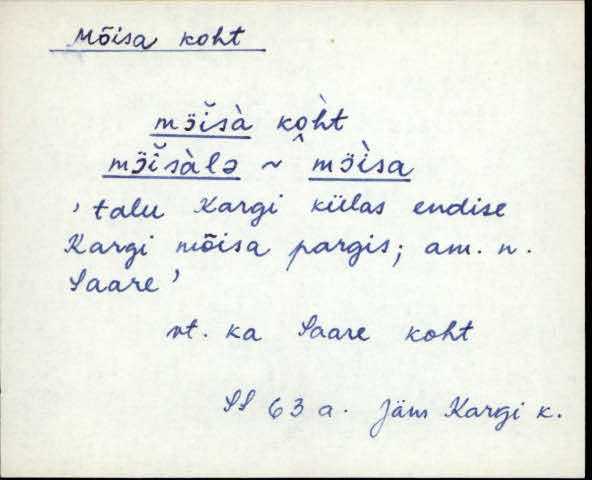 Mõisa koht
mɔ̈ĭsà koh̀t
mɔ̈ĭsàlə ~ mɔ̈ìsa
‚talu Kargi külas endise
Kargi mõisa pargis; am. n.
Saare’
vt. ka Saare koht
SS 63 a. Jäm Kargi k.